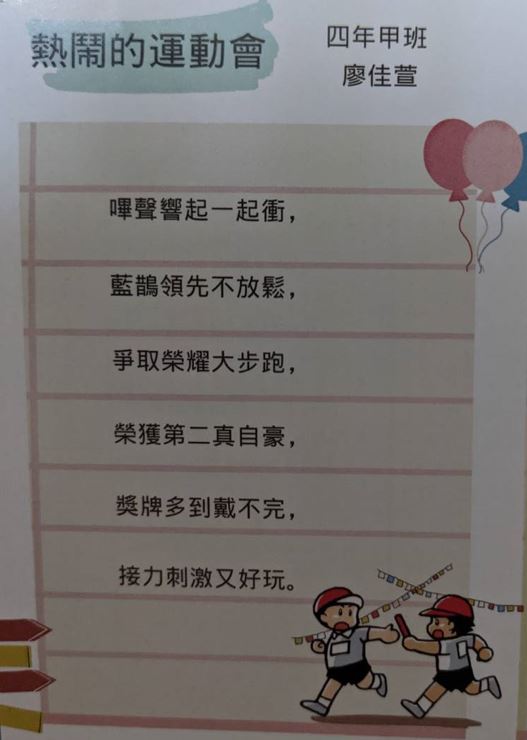 熱鬧的運動會
四年甲班
廖佳萱
嗶聲響起一起衝，
藍鵲領先不放鬆，
爭取榮耀大步跑，
榮獲第二真自豪，
獎牌多到戴不完，
接力刺激又好玩。